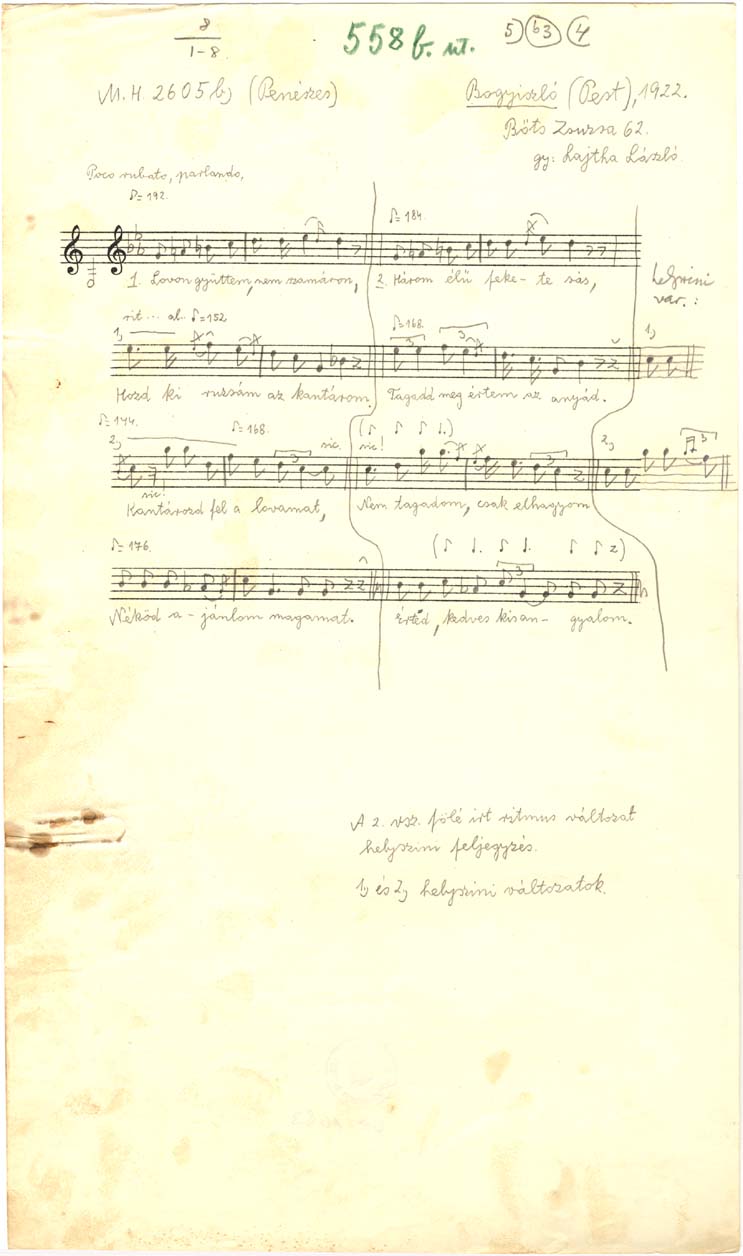 8
1-8.
558 b. ut.
5) b3 4
M. H. 2605 b) (Penészes)
Bogyiszló (Pest), 1922.
Bőts Zsuzsa 62.
gy: Lajtha László.
Poco rubato, parlando,
♪= 192.
♪= 184.
1. Lovon gyüttem, nem szamáron,
2. Három élű feke- te sás,
helyszini
var. :
rit ... al. ♪=152
♪=168.
1)
3
3
1)
Hozd ki ruzsám az kantárom.
Tagadd meg értem az anyád.
♪= 144.
♪= 168.
sic.
sic!
2)
3
3
2)
3
sic!
Kantározd fel a lovamat,
Nem tagadom, csak elhagyom
♪= 176.
3
Néköd a - jánlom magamat.
Érted, kedves kisan- gyalom.
A 2. vsz. fölé irt ritmus változat
helyszini feljegyzés.
1) és 2) helyszini változatok.